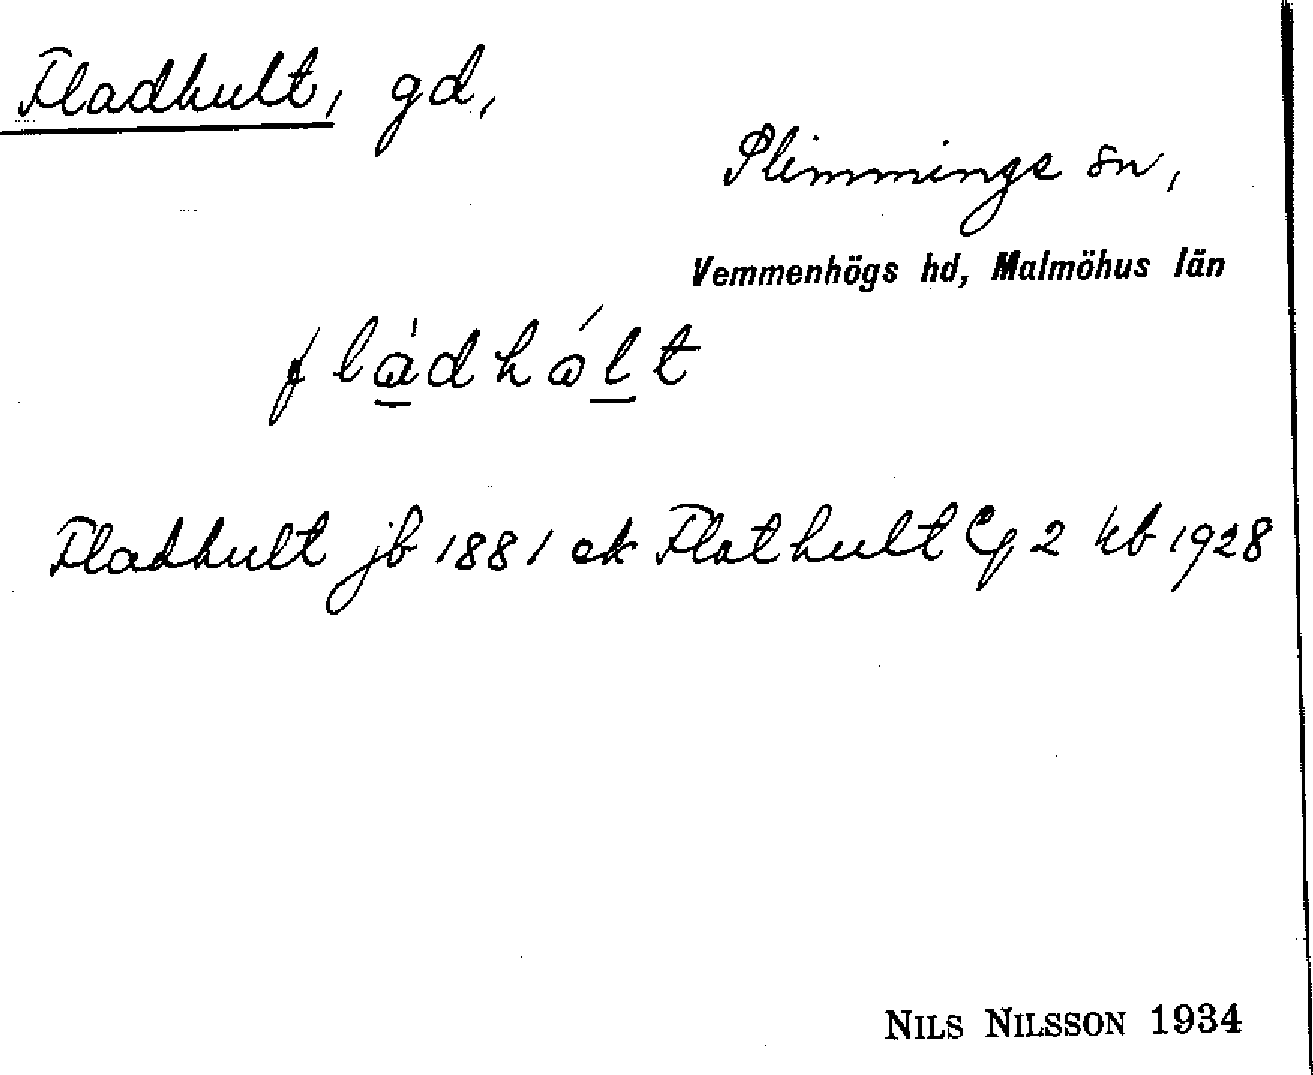 Fladhult, gd,
Slimminge sn,
Vemmenhögs hd, Malmöhus län
Fladhult jb 1881 ek Flathult Eg 2 kb 1928
NILS NILSSON 1934